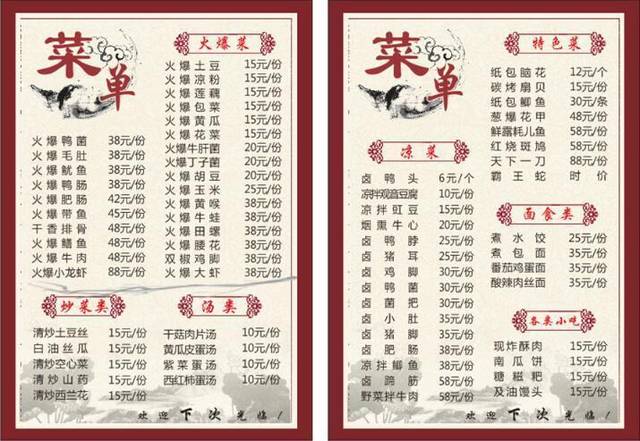 菜单
火爆鸭菌 38元/份
火爆毛肚 38元/份
火爆鱿鱼 38元/份
火爆鸭肠 38元/份
火爆肥肠 42元/份
火爆带鱼 45元/份
干香排骨 48元/份
火爆鳝鱼 48元/份
火爆牛肉 48元/份
火爆小龙虾 88元/份
火爆菜
火爆土豆 15元/份
火爆凉粉 15元/份
火爆莲藕 15元/份
火爆包菜 15元/份
火爆黄瓜 15元/份
火爆花菜 15元/份
火爆牛肝菌 20元/份
火爆丁子菌 20元/份
火爆胡豆 20元/份
火爆玉米 25元/份
火爆黄喉 38元/份
火爆牛蛙 38元/份
火爆田螺 38元/份
火爆腰花 38元/份
双椒鸡脚 38元/份
火爆大虾 38元/份
炒菜类
清炒土豆丝 15元/份
白油丝瓜 15元/份
清炒空心菜 15元/份
清炒山药 15元/份
清炒西兰花 15元/份
汤类
干菇肉片汤 10元/份
黄瓜皮蛋汤 10元/份
紫菜蛋汤 10元/份
西红柿蛋汤 10元/份
欢迎下次光临!
菜单
凉菜
卤鸭头 6元/个
凉拌观音豆腐 10元/份
凉拌豇豆 15元/份
烟熏牛心 20元/份
卤鸭脖 35元/份
卤猪耳 35元/份
卤鸡脚 30元/份
卤鸭菌 30元/份
卤菌把 30元/份
卤小肚 35元/份
卤猪脚 35元/份
卤肥肠 38元/份
凉拌鲫鱼 38元/份
卤蹄筋 58元/份
野菜拌牛肉 58元/份
特色菜
纸包脑花 12元/个
碳烤扇贝 15元/份
纸包鲫鱼 30元/条
葱爆花甲 48元/份
鲜露耗儿鱼 58元/份
红烧斑鸠 58元/份
天下一刀 88元/份
霸王蛇 时价
面食类
煮水饺 25元/份
煮包面 35元/份
番茄鸡蛋面 35元/份
酸辣肉丝面 35元/份
各类小吃
现炸酥肉 15元/份
南瓜饼 15元/份
糖糍粑 15元/份
及油馒头 15元/份
欢迎下次光临!